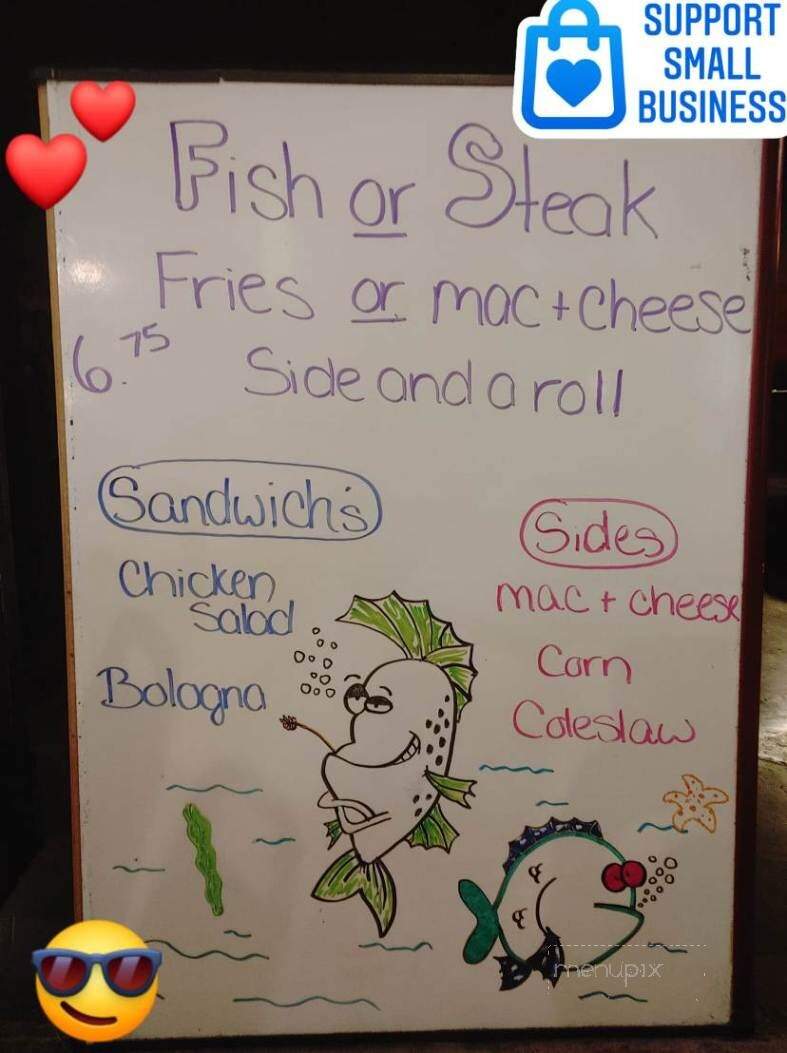 SUPPORT
SMALL
BUSINESS
Fish or Steak
Fries or mac + cheese
6.75 Side and a roll
Sandwich's
Chicken
Salad
Bologna
Sides
mac + cheese
Corn
Coleslaw
menupix